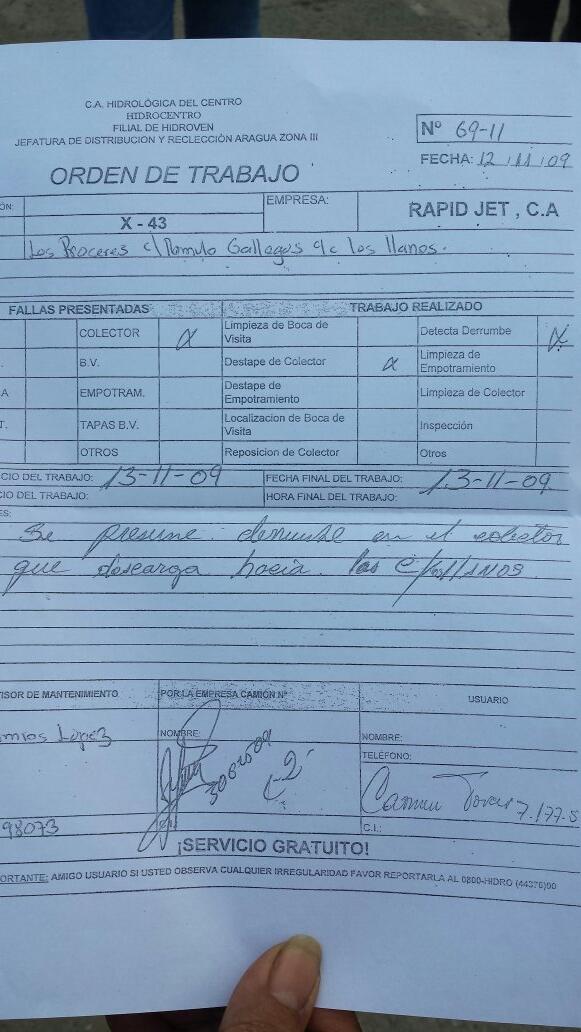 C.A. HIDROLÓGICA DEL CENTRO
HIDROCENTRO
FILIAL DE HIDROVEN
JEFATURA DE DISTRIBUCIÓN Y RECLECCIÓN ARAGUA ZONA III
Nº 69-11
FECHA: 12/11/09
ORDEN DE TRABAJO
ÓN:
EMPRESA:
X - 43
RAPID JET , C.A
Los Proceres c/ Romulo Gallegos c/c los llanos.
FALLAS PRESENTADAS TRABAJO REALIZADO
COLECTOR x Limpieza de Boca de Visita Detecta Derrumbe x
B.V. Destape de Colector x Limpieza de Empotramiento
A EMPOTRAM. Destape de Empotramiento Limpieza de Colector
T. TAPAS B.V. Localizacion de Boca de Visita Inspección
OTROS Reposicion de Colector Otros
CIO DEL TRABAJO: 13-11-09 FECHA FINAL DEL TRABAJO: 13-11-09
CIO DEL TRABAJO: HORA FINAL DEL TRABAJO:
ES:
Se presume derrumbe en el colector
que descarga hacia los
ISOR DE MANTENIMIENTO POR LA EMPRESA CAMIÓN Nº USUARIO
López NOMBRE: NOMBRE:
TELÉFONO:
Carmen Tovar 7.177.5
98073 C.I.:
¡SERVICIO GRATUITO!
PORTANTE: AMIGO USUARIO SI USTED OBSERVA CUALQUIER IRREGULARIDAD FAVOR REPORTARLA AL 0800-HIDRO (44376)00